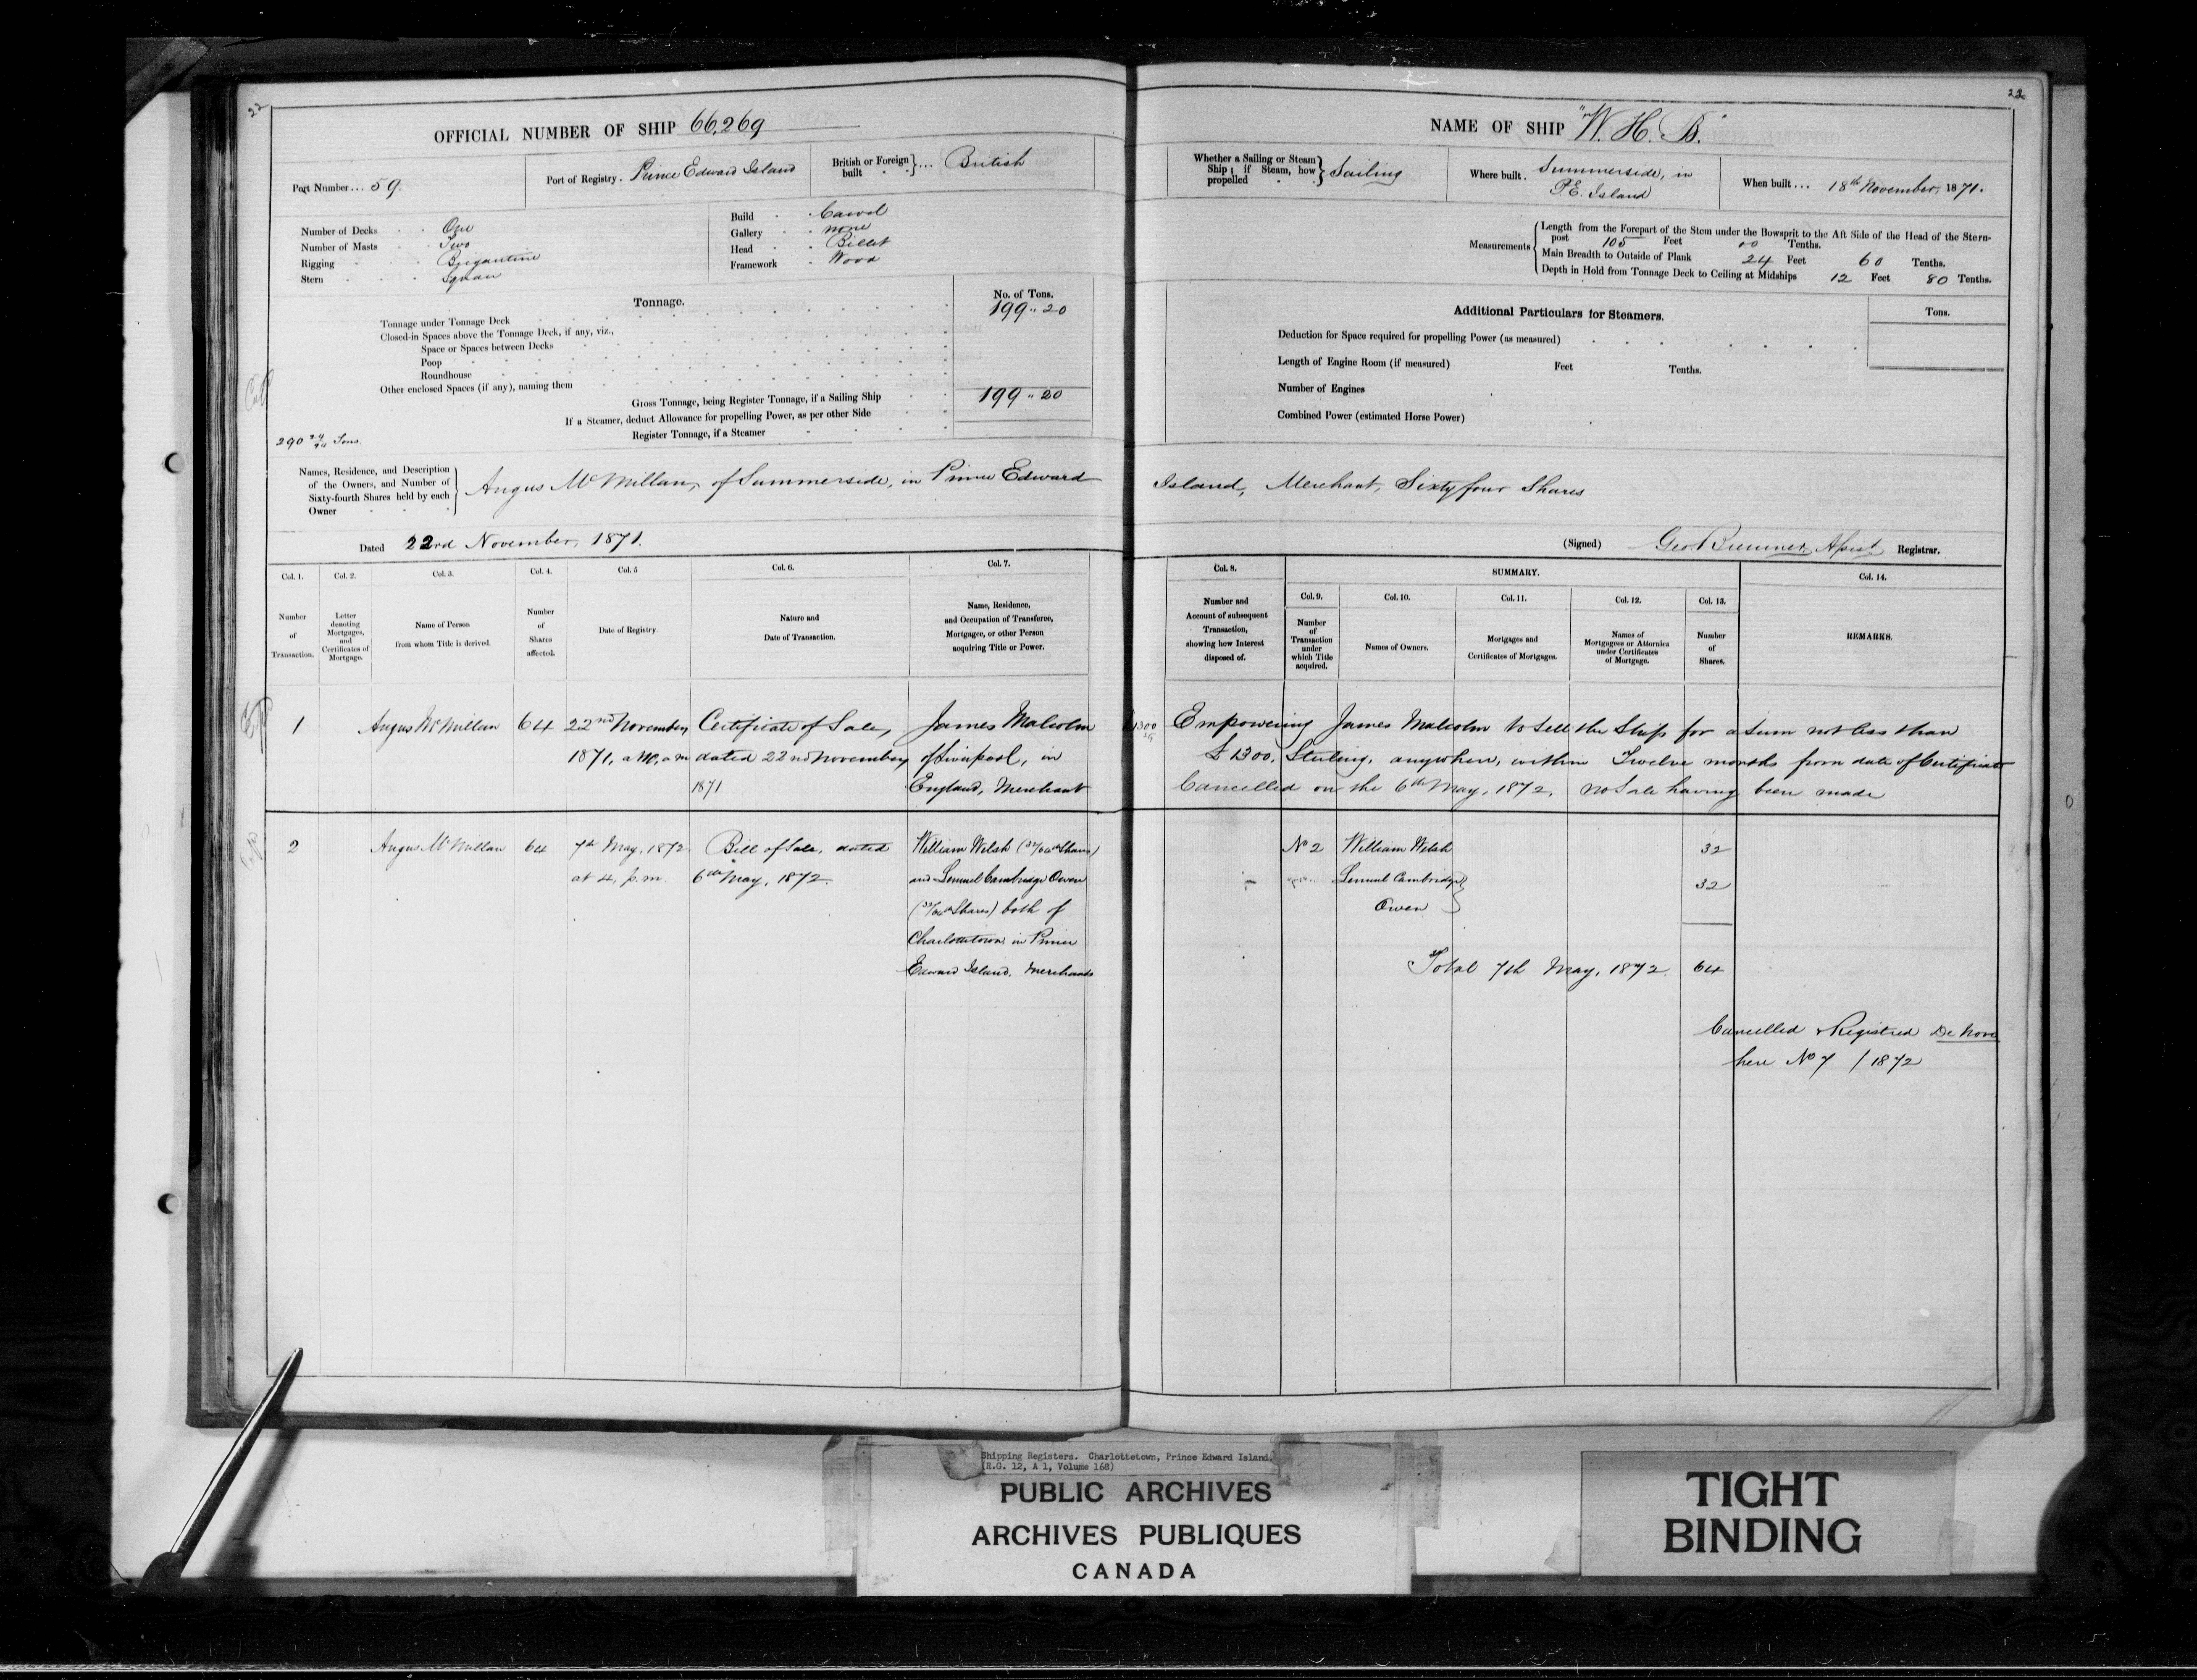 22
OFFICIAL NUMBER OF SHIP 66,269
Port Number... 59.
Port of Registry. Prince Edward Island
British or Foreign built } ... British
Number of Decks One
Number of Masts Two
Rigging Brigantine
Stern Square
Build Carvel
Gallery none
Head Billet
Framework Wood
Tonnage.
No. of Tons.
Tonnage under Tonnage Deck 199 .. 20
Closed-in Spaces above the Tonnage Deck, if any, viz.,
Space or Spaces between Decks
Poop
Roundhouse
Other enclosed Spaces (if any), naming them
Gross Tonnage, being Register Tonnage, if a Sailing Ship 199 .. 20
If a Steamer, deduct Allowance for propelling Power, as per other Side
Register Tonnage, if a Steamer
290 Tons.
22
NAME OF SHIP "W. H. B."
Whether a Sailing or Steam Ship; if Steam, how propelled } Sailing
Where built. Summerside, in P.E. Island
When built... 18th November, 1871.
Measurements
Length from the Forepart of the Stem under the Bowsprit to the Aft Side of the Head of the Stern-
post 105 Feet 00 Tenths.
Main Breadth to Outside of Plank 24 Feet 60 Tenths.
Depth in Hold from Tonnage Deck to Ceiling at Midships 12 Feet 80 Tenths.
Additional Particulars for Steamers.
Tons.
Deduction for Space required for propelling Power (as measured)
Length of Engine Room (if measured) Feet Tenths.
Number of Engines
Combined Power (estimated Horse Power)
Names, Residence, and Description
of the Owners, and Number of
Sixty-fourth Shares held by each
Owner
Angus McMillan, of Summerside, in Prince Edward Island, Merchant, Sixty four Shares
Dated 22nd November, 1871.
(Signed) Geo. Bremner Registrar.
Col. 1. Col. 2. Col. 3. Col. 4. Col. 5 Col. 6. Col. 7.
Number of Transaction.
Letter denoting Mortgages, and Certificates of Mortgage.
Name of Person from whom Title is derived.
Number of Shares affected.
Date of Registry
Nature and Date of Transaction.
Name, Residence, and Occupation of Transferee, Mortgagee, or other Person acquiring Title or Power.
Col. 8.
Number and Account of subsequent Transaction, showing how Interest disposed of.
SUMMARY.
Col. 9. Col. 10. Col. 11. Col. 12. Col. 13.
Number of Transaction under which Title acquired.
Names of Owners.
Mortgages and Certificates of Mortgages.
Names of Mortgagees or Attornies under Certificates of Mortgage.
Number of Shares.
Col. 14.
REMARKS.
1 Angus McMillan 64 22nd November Certificate of Sale, James Malcolm
dated 22nd November of Liverpool, in
1871 England, Merchant
Empowering James Malcolm to sell the Ship for a sum not less than
£1300, Sterling, anywhere, within Twelve months from date of Certificate
Cancelled on the 6th May, 1872, no Sale having been made
2 Angus McMillan 64 7th May, 1872 Bill of Sale, dated William Welsh (32/64th Shares)
at 4, p.m. 6th May, 1872. and Lemuel Cambridge Owen
(32/64th Shares) both of
Charlottetown in Prince
Edward Island, Merchants
No 2 William Welsh 32
Lemuel Cambridge 32
Owen
Total 7th May, 1872. 64
Cancelled & Registered De Novo
here No 7 / 1872
Shipping Registers. Charlottetown, Prince Edward Island.
(R.G. 12, A 1, Volume 168)
PUBLIC ARCHIVES
ARCHIVES PUBLIQUES
CANADA
TIGHT
BINDING